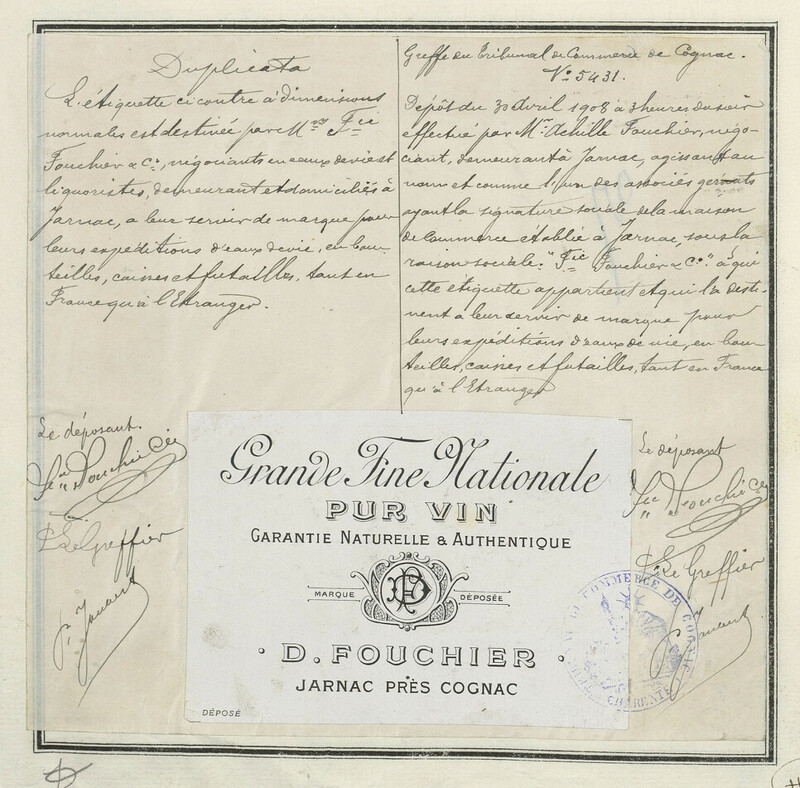 Duplicata
L'étiquette ci contre à dimensions
normales est destinée par M.rs F.cie
Fouchier & C.ie, négociants en eaux de vie et
liquoristes, demeurant et domiciliés à
Jarnac, a leur servir de marque pour
leurs expéditions d'eaux de vie, en bou-
teilles, caisses et futailles, tant en
France qu'à l'Etranger.
Greffe du Tribunal de Commerce de Cognac.
N.o 5431.
Dépôt du 30 Avril 1908 à 3 heures du soir
effectué par M.r Achille Fouchier, négo-
ciant, demeurant à Jarnac, agissant au
nom et comme l'un des associés gérants
ayant la signature sociale de la maison
de Commerce établie à Jarnac, sous la
raison sociale "F.cie Fouchier & C.o" à qui
cette étiquette appartient et qui l'a desti-
nent à leur servir de marque pour
leurs expéditions d'eaux de vie, en bou-
teilles, caisses et futailles, tant en France
qu'à l'Etranger
Le déposant.
Fouchier & Cie
Le Greffier
Le déposant
Fouchier & Cie
Le Greffier
Grande Fine Nationale
PUR VIN
GARANTIE NATURELLE & AUTHENTIQUE
MARQUE DÉPOSÉE
· D. FOUCHIER ·
JARNAC PRÈS COGNAC
DÉPOSÉ
COMMERCE DE COGNAC
CHARENTE